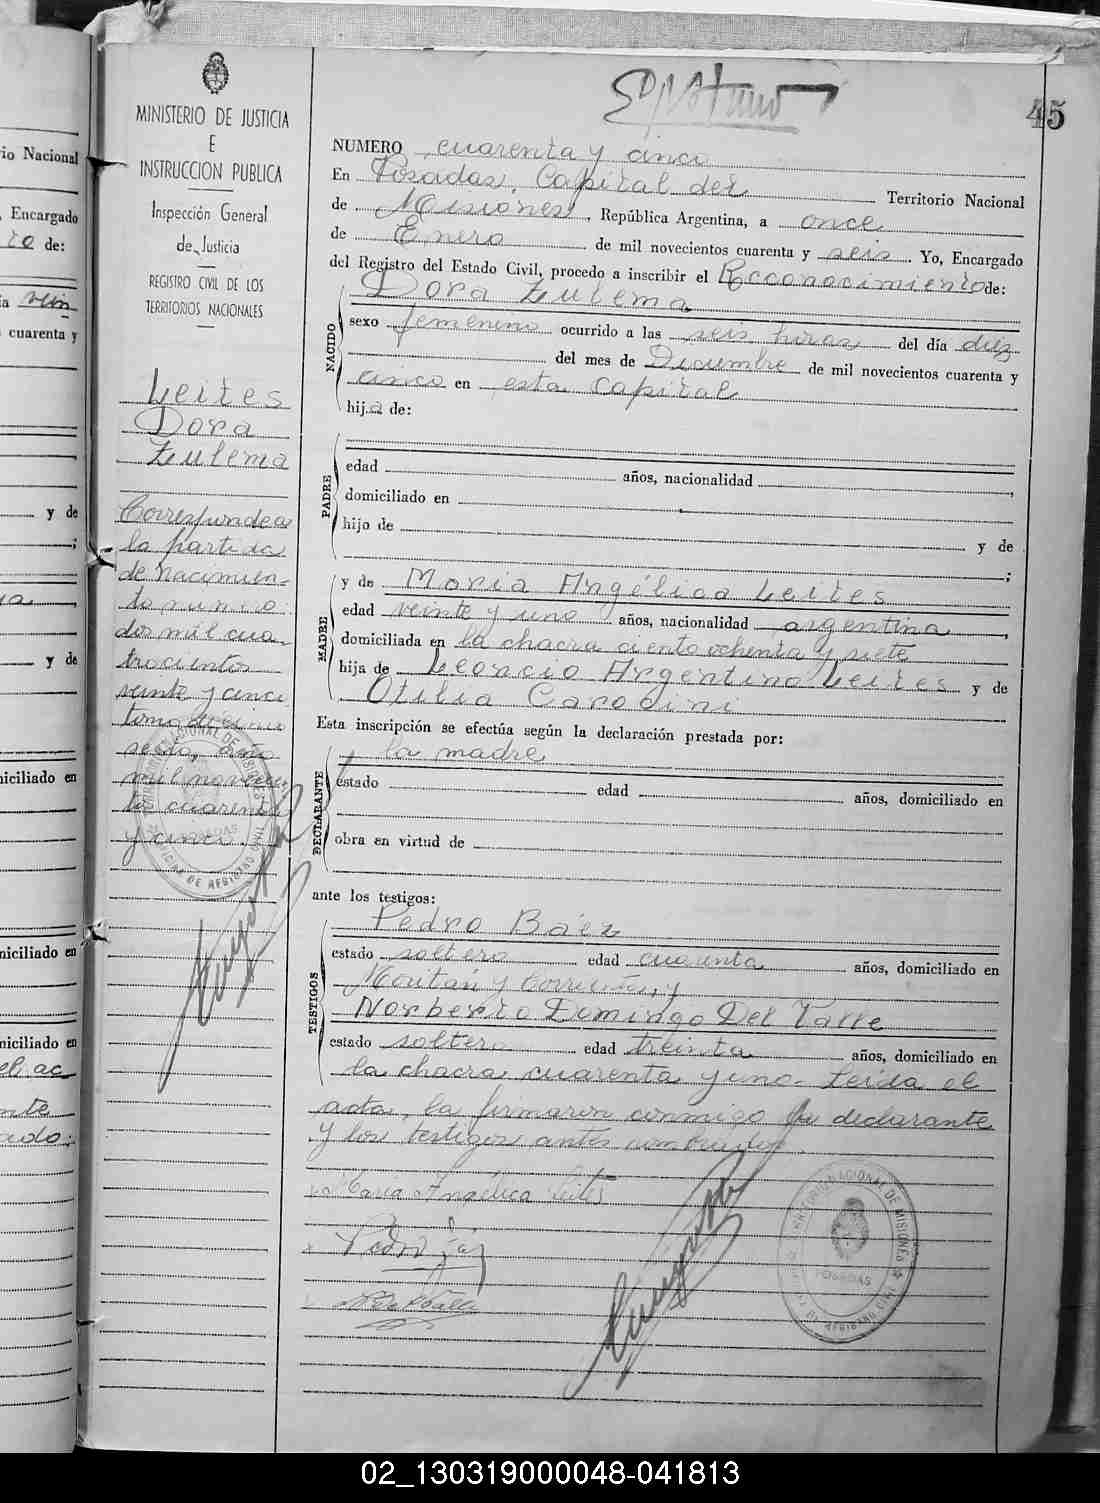 45
MINISTERIO DE JUSTICIA
E
INSTRUCCION PUBLICA
Inspección General
de Justicia
REGISTRO CIVIL DE LOS
TERRITORIOS NACIONALES
Leites
Dora
Zulema
Corresponde a
la partida
de nacimien-
to numero
dos mil cua-
trocientos
veinte y cinco
tomo decimo
sexto, año
mil novecien-
to cuarenta
y cinco.
NUMERO cuarenta y cinco
En Posadas, Capital del Territorio Nacional
de Misiones, República Argentina, a once
de Enero de mil novecientos cuarenta y seis. Yo, Encargado
del Registro del Estado Civil, procedo a inscribir el Reconocimiento de:
NACIDO
Dora Zulema
sexo femenino ocurrido a las seis horas del día diez
del mes de Diciembre de mil novecientos cuarenta y
cinco en esta Capital
hija de:
PADRE
edad años, nacionalidad ,
domiciliado en
hijo de y de
;
MADRE
y de Maria Angélica Leites
edad veinte y uno años, nacionalidad argentina,
domiciliada en la chacra ciento ochenta y siete
hija de Leoncio Argentino Leites y de
Otilia Carodini
Esta inscripción se efectúa según la declaración prestada por:
DECLARANTE
la madre
estado edad años, domiciliado en
obra en virtud de
ante los testigos:
TESTIGOS
Pedro Báez
estado soltero edad cuarenta años, domiciliado en
y Corrientes, y
Norberto Domingo Del Valle
estado soltero edad treinta años, domiciliado en
la chacra cuarenta y uno. Leida el
acta, la firmaron conmigo la declarante
y los testigos antes nombrados.
Maria Angélica Leites
io Nacional
Encargado
de:
cuarenta y
y de
;
y de
niciliado en
niciliado en
niciliado en
TERRITORIO NACIONAL DE MISIONES
POSADAS
02_130319000048-041813